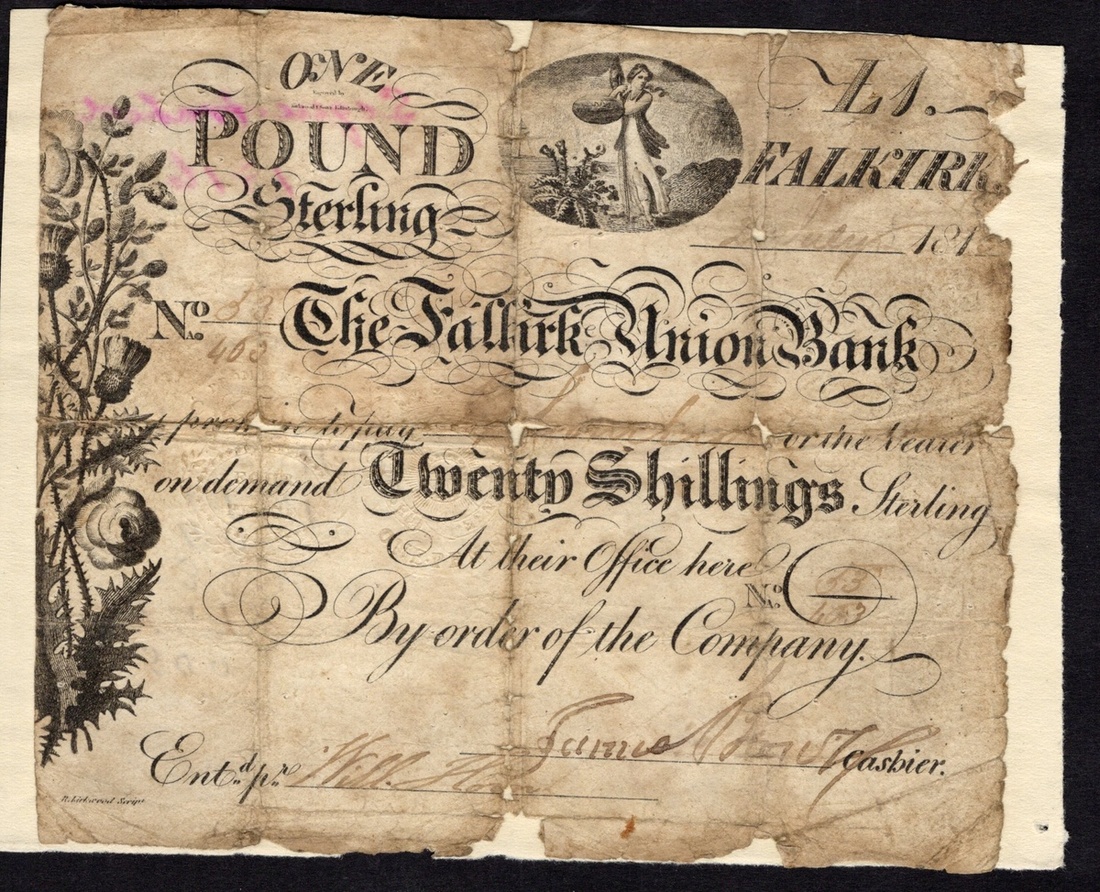 ONE
Engraved by
POUND
Sterling
£1.
FALKIRK
181
No. 53
463
The Falkirk Union Bank
promise to pay or the bearer
on demand Twenty Shillings Sterling
At their Office here
No. 53
463
By order of the Company.
James Cashier.
Entd. pr. Will
R. Kirkwood Script